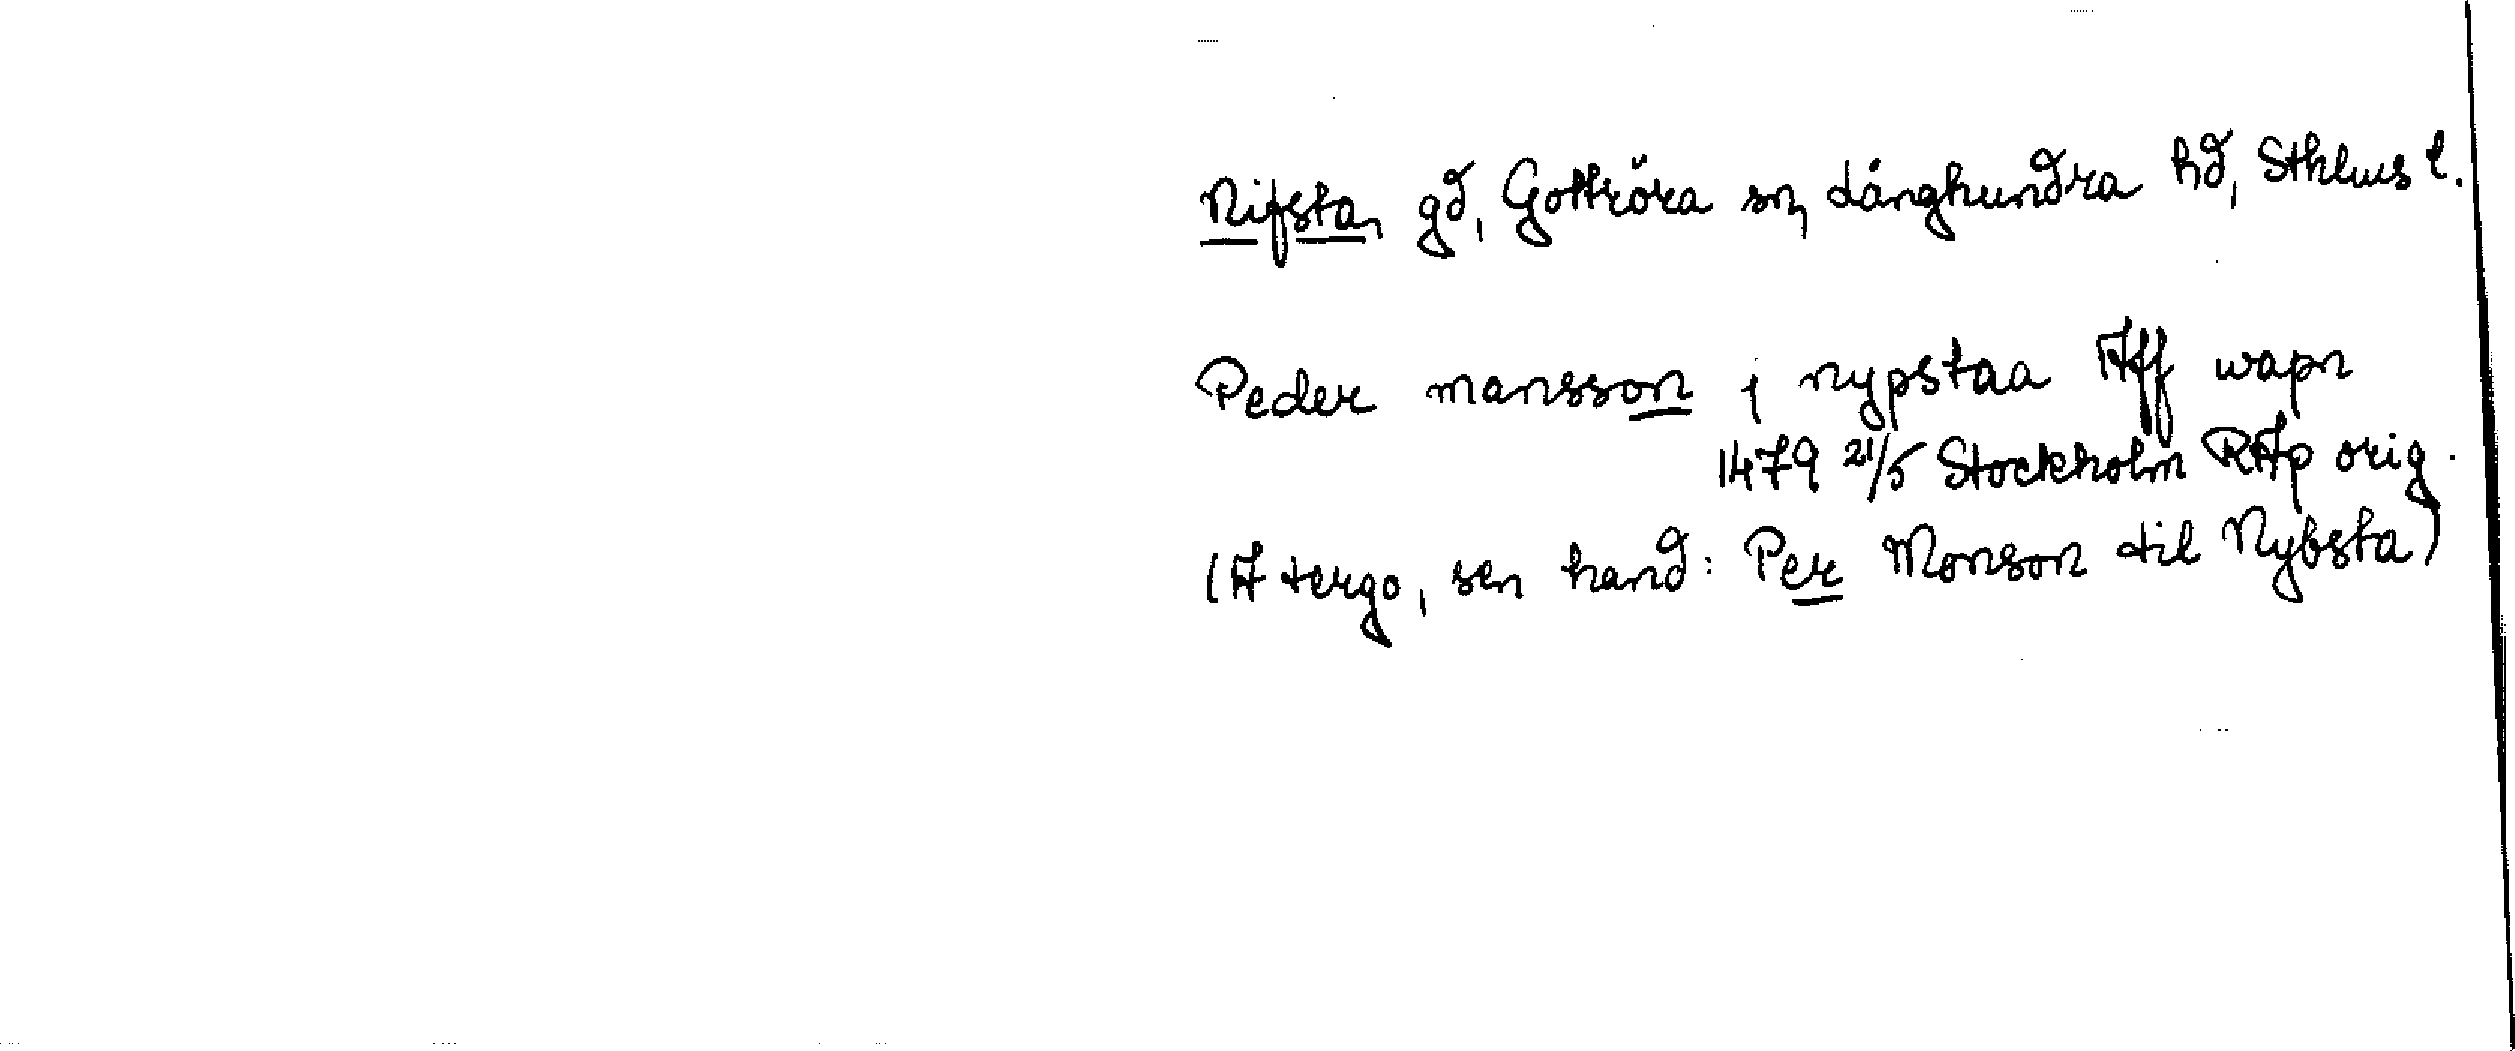 Nifsta, gd, Gottröra sn, Långhundra hd, Sthlms l.
Peder mansson j nypstaa Aff wapn
1479 21/5 Stockholm RAp orig.
(A tergo, sen hand: Per Monson til Nybsta)